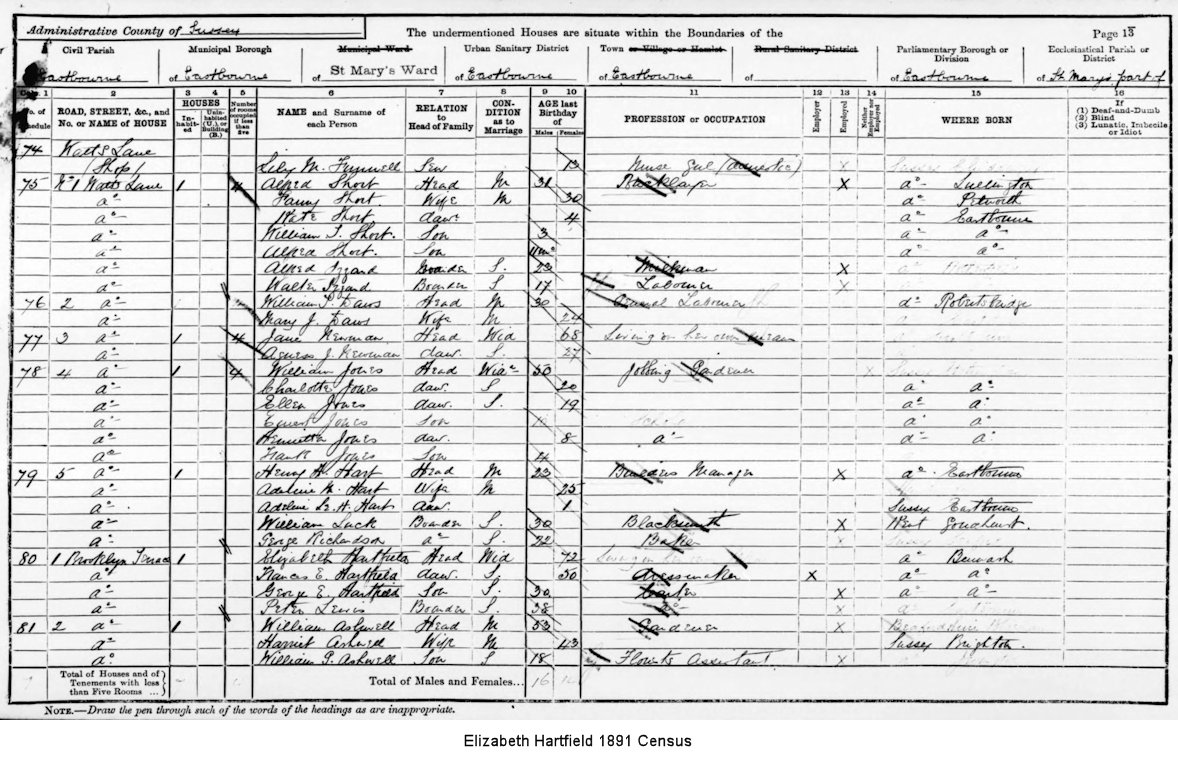 Administrative County of Sussex
The undermentioned Houses are situate within the Boundaries of the
Page 13
Civil Parish
Municipal Borough
Municipal Ward
Urban Sanitary District
Town or Village or Hamlet
Rural Sanitary District
Parliamentary Borough or Division
Ecclesiastical Parish or District
of Eastbourne
of Eastbourne
of St Mary's Ward
of Eastbourne
of Eastbourne
of
of Eastbourne
of St Marys part of
1 2 3 4 5 6 7 8 9 10 11 12 13 14 15 16
No. of Schedule
ROAD, STREET, &c., and No. or NAME of HOUSE
HOUSES
Inhabited
Uninhabited (U.), or Building (B.)
Number of rooms occupied if less than five
NAME and Surname of each Person
RELATION to Head of Family
CONDITION as to Marriage
AGE last Birthday of
Males Females
PROFESSION or OCCUPATION
Employer
Employed
Neither Employer nor Employed
WHERE BORN
If
(1) Deaf-and-Dumb
(2) Blind
(3) Lunatic, Imbecile or Idiot
74 Watts Lane
(Shop) Lily M. Serv 13 Nurse Girl (domestic) X
75 No 1 Watts Lane 1 4 Alfred Short Head M 31 Bricklayer X do Lullington
do Fanny Short Wife M 30 do Petworth
do Kate Short daur 4 do Eastbourne
do William Short Son 3 do do
do Alfred Short Son 11mo do do
do Alfred Izzard Boarder S. 23 Milkman X
do Walter Izzard Boarder S 17 Labourer X
76 2 do William Daws Head M 30 Labourer do Robertsbridge
do Mary J. Daws Wife M 24
77 3 do 1 4 Jane Newman Head Wid 68 Living on her own means
do Agness J. Newman daur. S. 27
78 4 do 1 4 William Jones Head Widr 50 Jobbing Gardener X
do Charlotte Jones daur. S 20 do do
do Ellen Jones daur. S. 19 do do
do Ernest Jones Son do do
do Henrietta Jones daur. 8 do do do
do Frank Jones Son 4
79 5 do 1 Henry H. Hart Head M 23 Business Manager X do Eastbourne
do Adeline M. Hart Wife M 25
do Adeline H. Hart daur. 1 Sussex Eastbourne
do William Luck Boarder S. 30 Blacksmith X Goudhurst
do George Richardson do S. 22 Baker X
80 1 Brooklyn Terrace 1 Elizabeth Hartfield Head Wid 72 Living on do Burwash
do Frances E. Hartfield daur. S. 30 Dressmaker X do do
do George E. Hartfield Son S. 30 Carter X do do
do Peter Lewis Boarder S. 38 do X
81 2 do 1 William Ashwell Head M 53 Gardener X
do Harriet Ashwell Wife M 43 Sussex Brighton
do William Ashwell Son S 18 Florists Assistant X
Total of Houses and of Tenements with less than Five Rooms ...
Total of Males and Females... 16
NOTE.—Draw the pen through such of the words of the headings as are inappropriate.
Elizabeth Hartfield 1891 Census